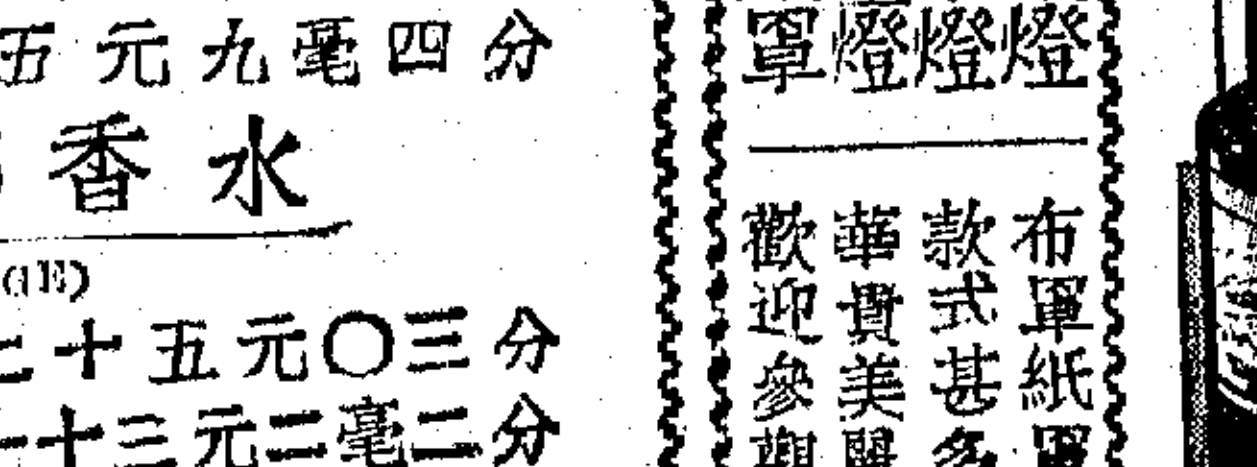 五元九毫四分
香水
GE)
十五元〇三分
十三元二毫二分
燈
燈
燈
罩
布罩紙罩
款式甚多
華貴美麗
歡迎參觀